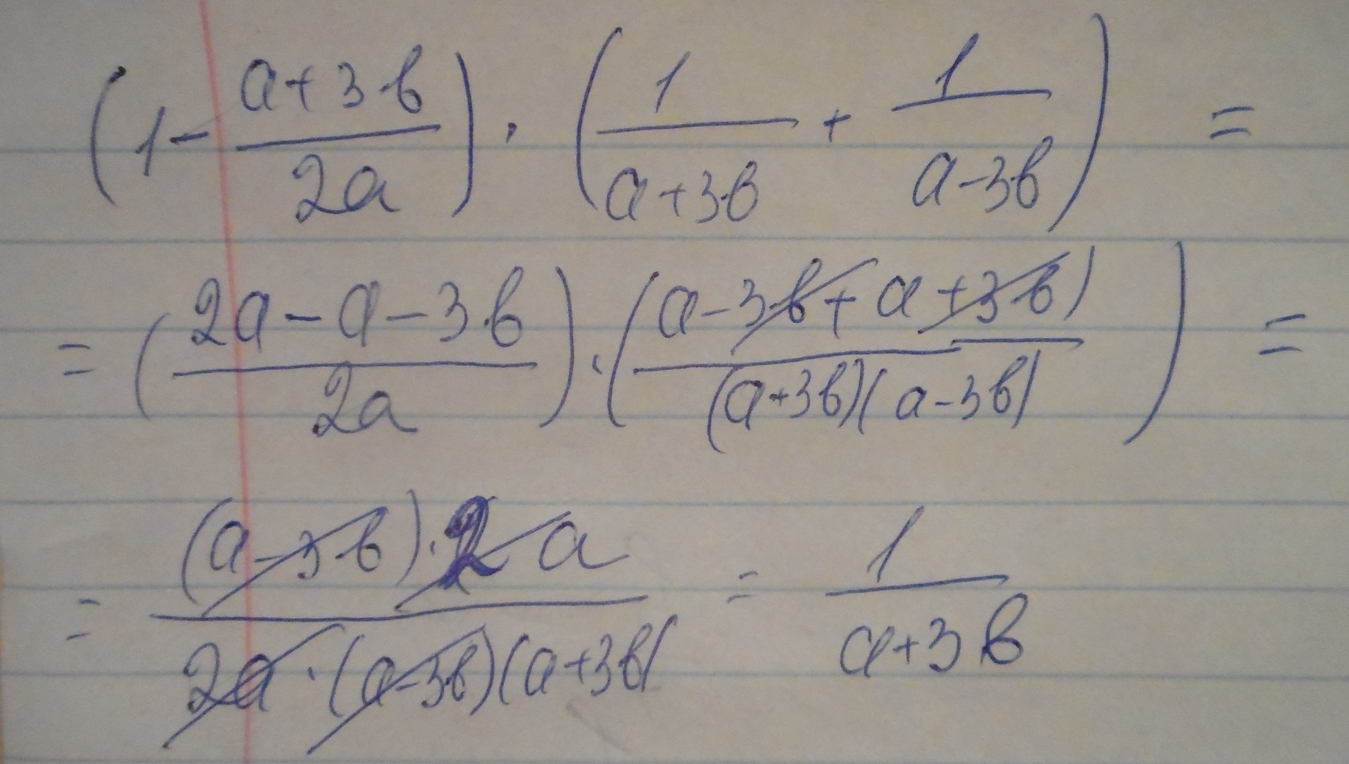 (1 - \frac{a+3b}{2a}) \cdot (\frac{1}{a+3b} + \frac{1}{a-3b}) =
= (\frac{2a-a-3b}{2a}) \cdot (\frac{a-3b+a+3b)}{(a+3b)(a-3b)}) =
= \frac{(a-3b) \cdot 2a}{2a \cdot (a-3b)(a+3b)} = \frac{1}{a+3b}